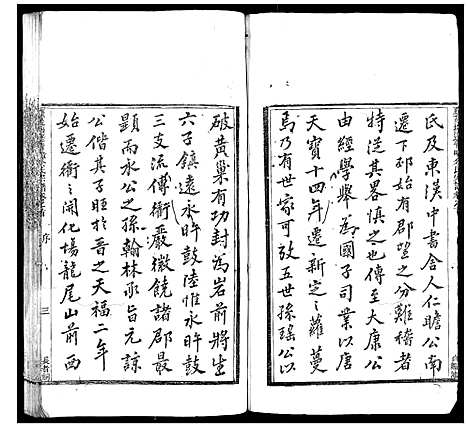 氏及東漢中書舍人仁瞻公南
遷下邳始有郡望之分難稽者
特從其畧慎之也傳至大康公
由經學舉為國子司業以唐
天寶十四年遷新定之蘿蔓
焉乃有世家可放五世孫瑤公以
破黃巢有功封為岩前將生
六子鎮遠永旿鼓陸惟永旿鼓
三支流傳衢嚴徽饒諸郡最
顯而永公之孫翰林承旨元諒
公偕其子旺於晉之天福二年
始遷衢之開化場龍尾山前西
序
三